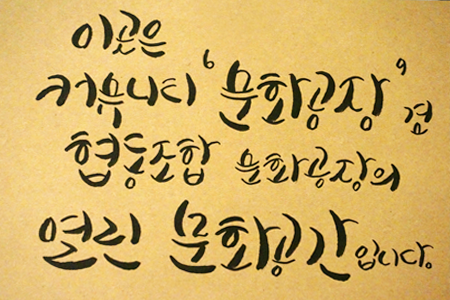 이곳은
커뮤니티 '문화공장' 겸
협동조합 문화공장의
열린 문화공간입니다.